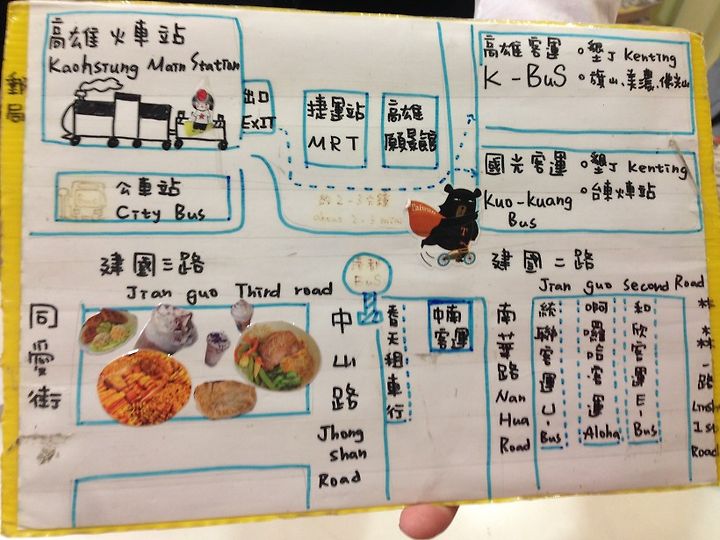 高雄火車站
Kaohsiung Main Station
郵局
出口
EXIT
捷運站
MRT
高雄
願景館
高雄客運
K-BuS
。墾丁 Kenting
。旗山,美濃,佛光山
國光客運
Kuo-kuang
Bus
。墾丁 Kenting
。台東火車站
公車站
City Bus
約2-3分鐘
about 2-3 min
Taiwan
T
建國三路
Jian guo Third road
BuS
建國二路
Jian guo Second Road
同愛街
中山路
Jhong
shan
Road
香天租車行
中南
客運
南華路
Nan
Hua
Road
統聯客運 U-
Bus
啊囉哈客運
Aloha
和欣客運 E-
Bus
林森一路
Linsh
1st
Road